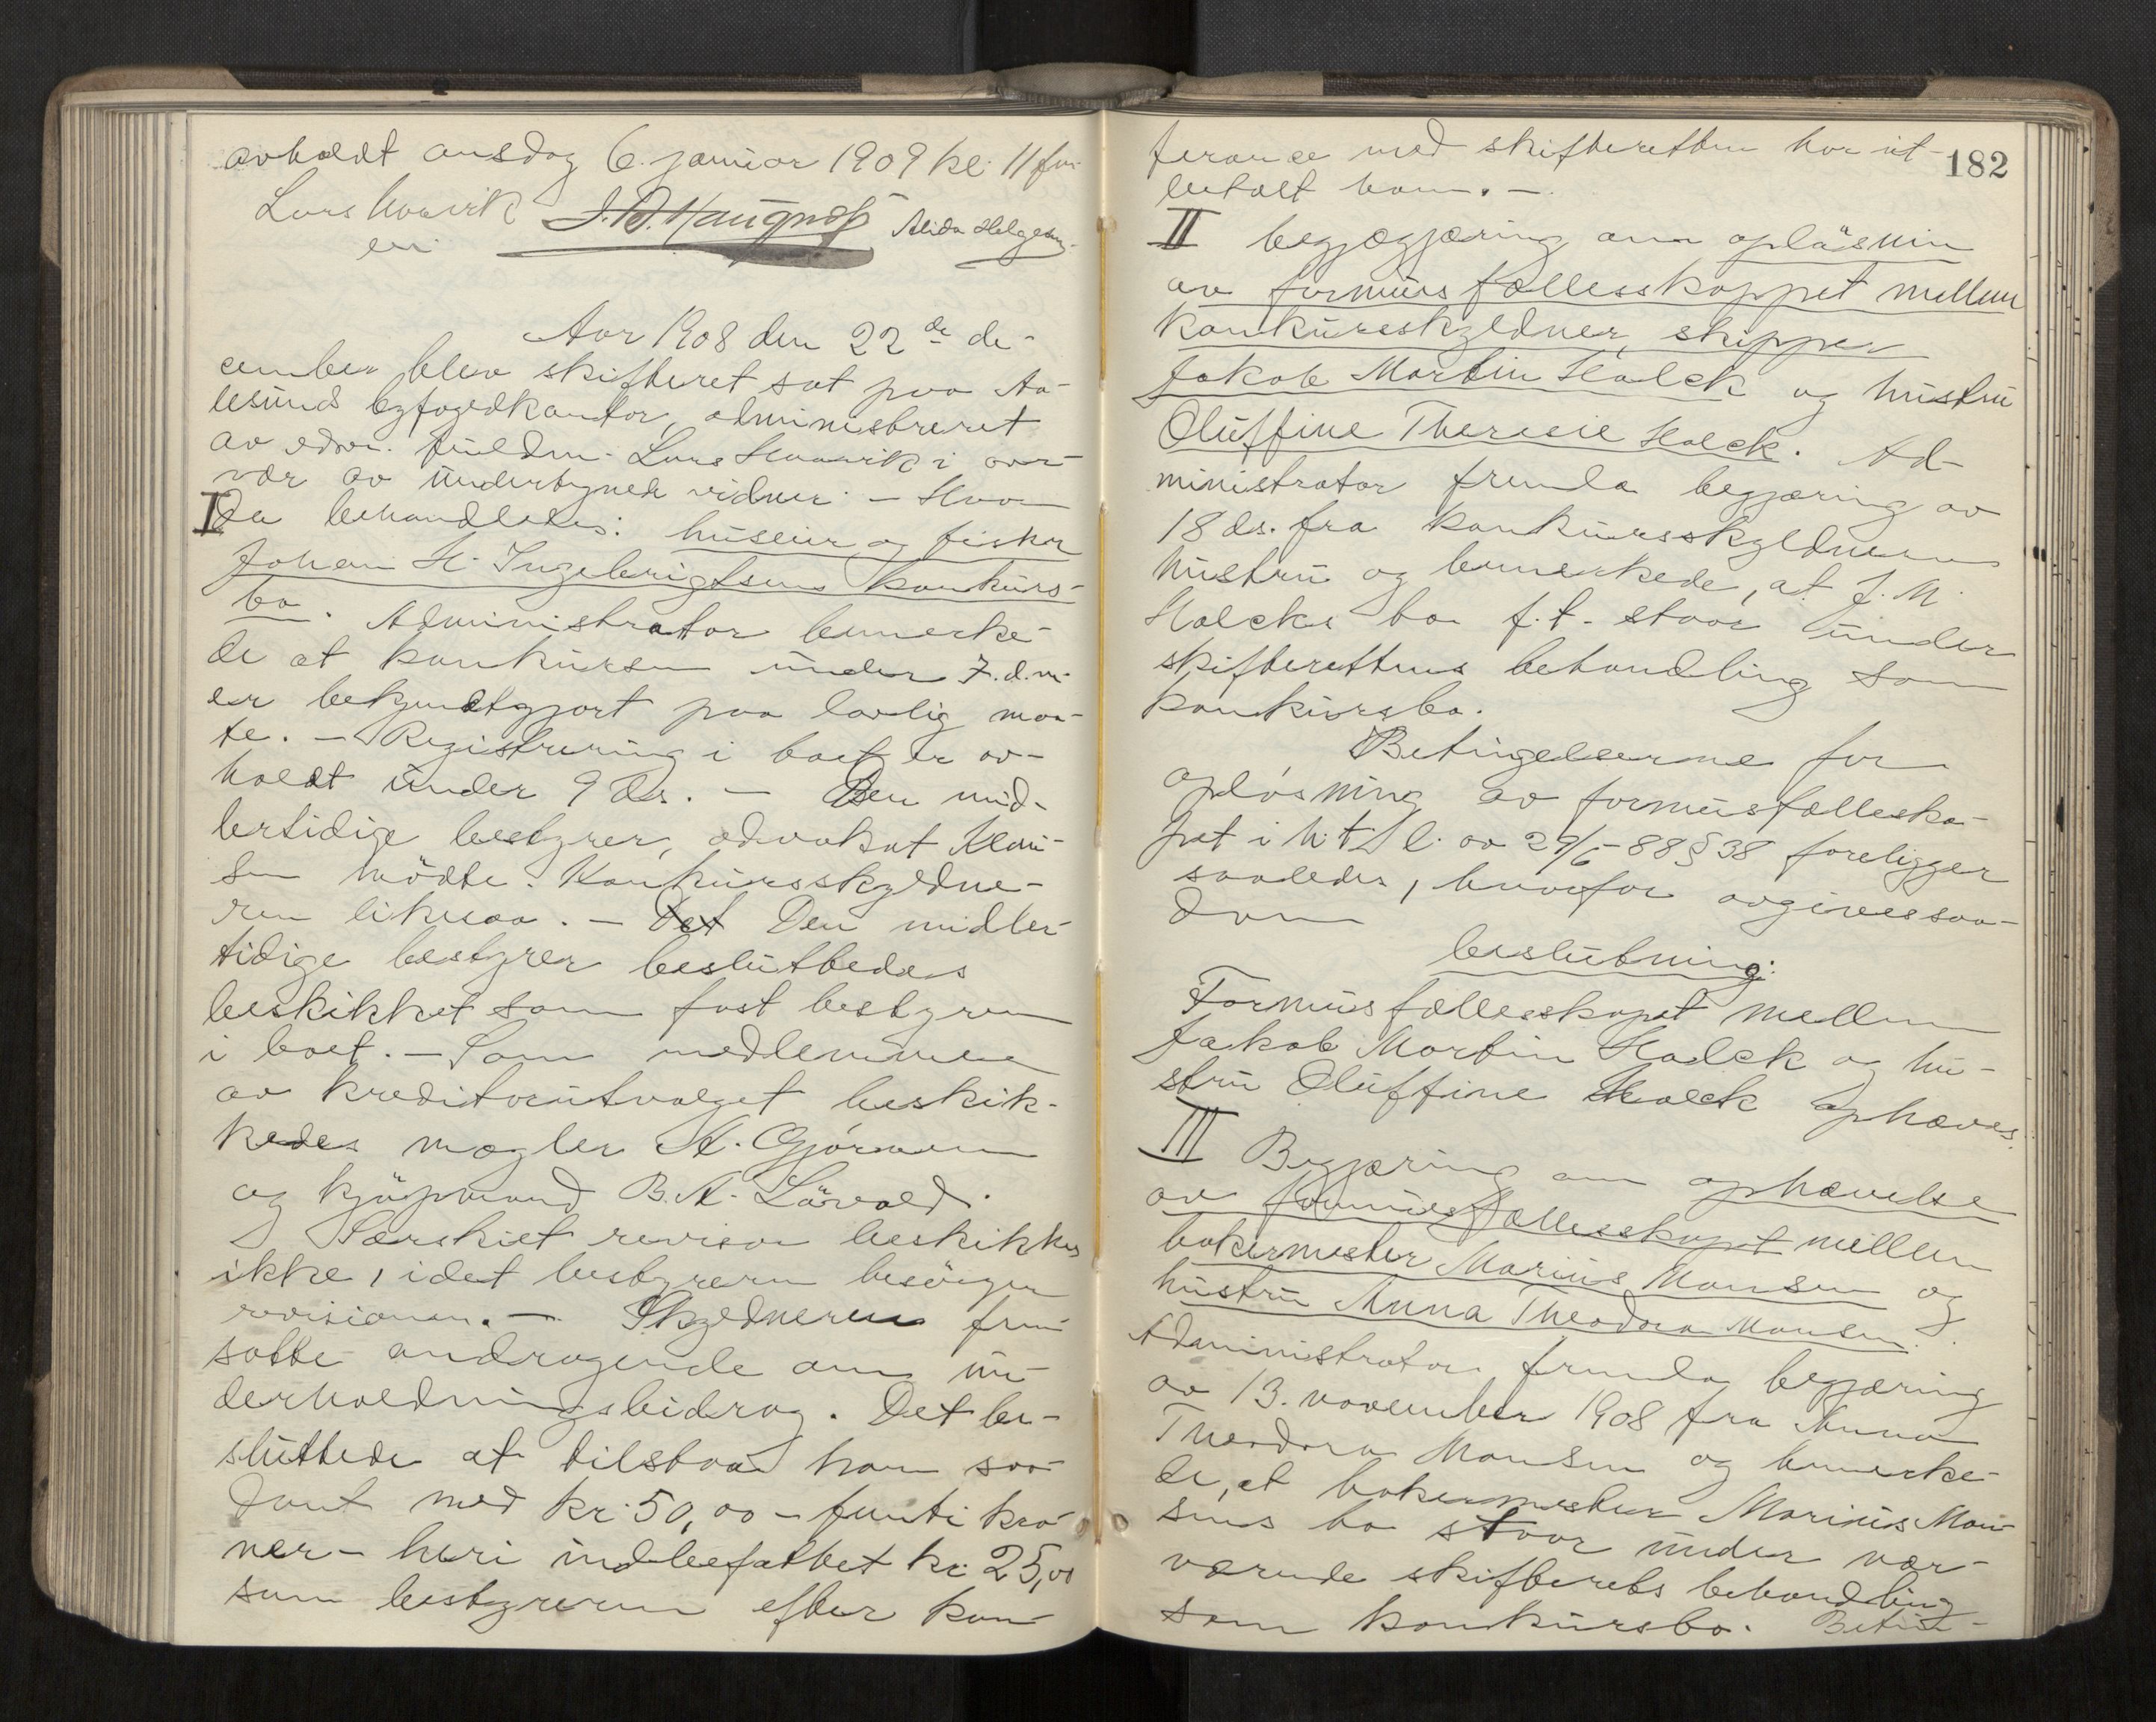 avholdt onsdag 6. januar 1909 kl. 11 fm.
Lars Hovirk J. D. Haugnæs Alida Helgesen
em.
Aar 1908 den 22de de-
cember blev skifteret sat paa Aa-
lesunds byfogedkontor, administreret
av edsv. fuldm. Lars Hovirk i over-
vær av undertegnede vidner. – Hvor
I
da behandledes: huseier og fisker
Johan H. Ingebrigtsens konkurs-
bo. Administrator bemerke-
de at konkursen under 7. d.m.
er bekjendtgjort paa lovlig maa-
te. – Registrering i boet er av-
holdt under 9 ds. – Den mid-
lertidige bestyrer, advokat Klau-
sen mödte. Konkursskyldne-
ren likesaa. – Det Den midler-
tidige bestyrer besluttedes
beskikket som fast bestyrer
i boet. – Som medlemmer
av kreditorutvalget beskik-
kedes mægler H. Gjörtsen
og kjöpmand B. A. Lövold.
Særskilt revisor beskikkes
ikke, idet bestyreren besörger
revisionen. – Skyldneren frem-
satte andragende om un-
derholdningsbidrag. Det be-
sluttedes at tilstaa ham saa-
dant med kr. 50,00 – femti kro-
ner – heri indbefattet kr. 25,00
som bestyreren efter kon-
182
ferance med skifteretten har ut-
betalt ham. –
II begjægjæring om oplösnin
av formues fællesskappet mellem
konkursskyldner, skipper
Jakob Martin Holck og hustru
Oluffine Theresie Holck. Ad-
ministrator fremla begjæring av
18 ds. fra konkursskyldnerens
hustru og bemerkede, at J. M.
Holcks bo f.t. staar under
skifterettens behandling som
konkursbo.
Betingelserne for
oplösning av formuesfælleska-
pet i h.t. l. av 29/6-88 § 38 foreligger
saaledes, hvorfor avgives saa-
dan
beslutning:
Formuesfællesskapet mellem
Jakob Martin Holck og hu-
stru Oluffine Holck ophæves.
III Begjæring om ophævelse
av formuesfællesskapet mellem
bakermester Marius Monsen og
hustru Anna Theodora Monsen.
Administrator fremla begjæring
av 13. november 1908 fra Anna
Theodora Monsen og bemerke-
de, at bakermester Marius Mon-
sens bo staar under nær-
værende skifterets behandling
som konkursbo. Beting-